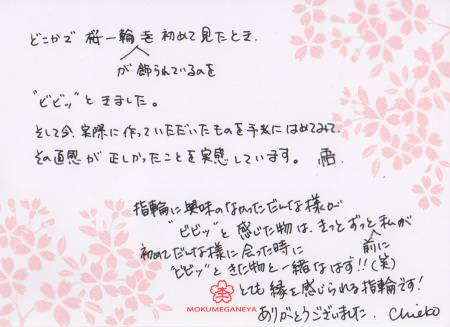 どこかで 桜一輪を初めて見たとき、
が飾られているのを
"ビビッ"ときました。
そして今、実際に作っていただいたものを手にはめてみて、
その直感が正しかったことを実感しています。
指輪に興味のなかっただんな様が
"ビビッ"と感じた物は、きっとずっと私が
初めてだんな様に会った時に 前に
"ビビッ"ときた物と一緒なはず!!(笑)
とても縁を感じられる指輪です!
ありがとうございました。 Chieko
MOKUMEGANEYA